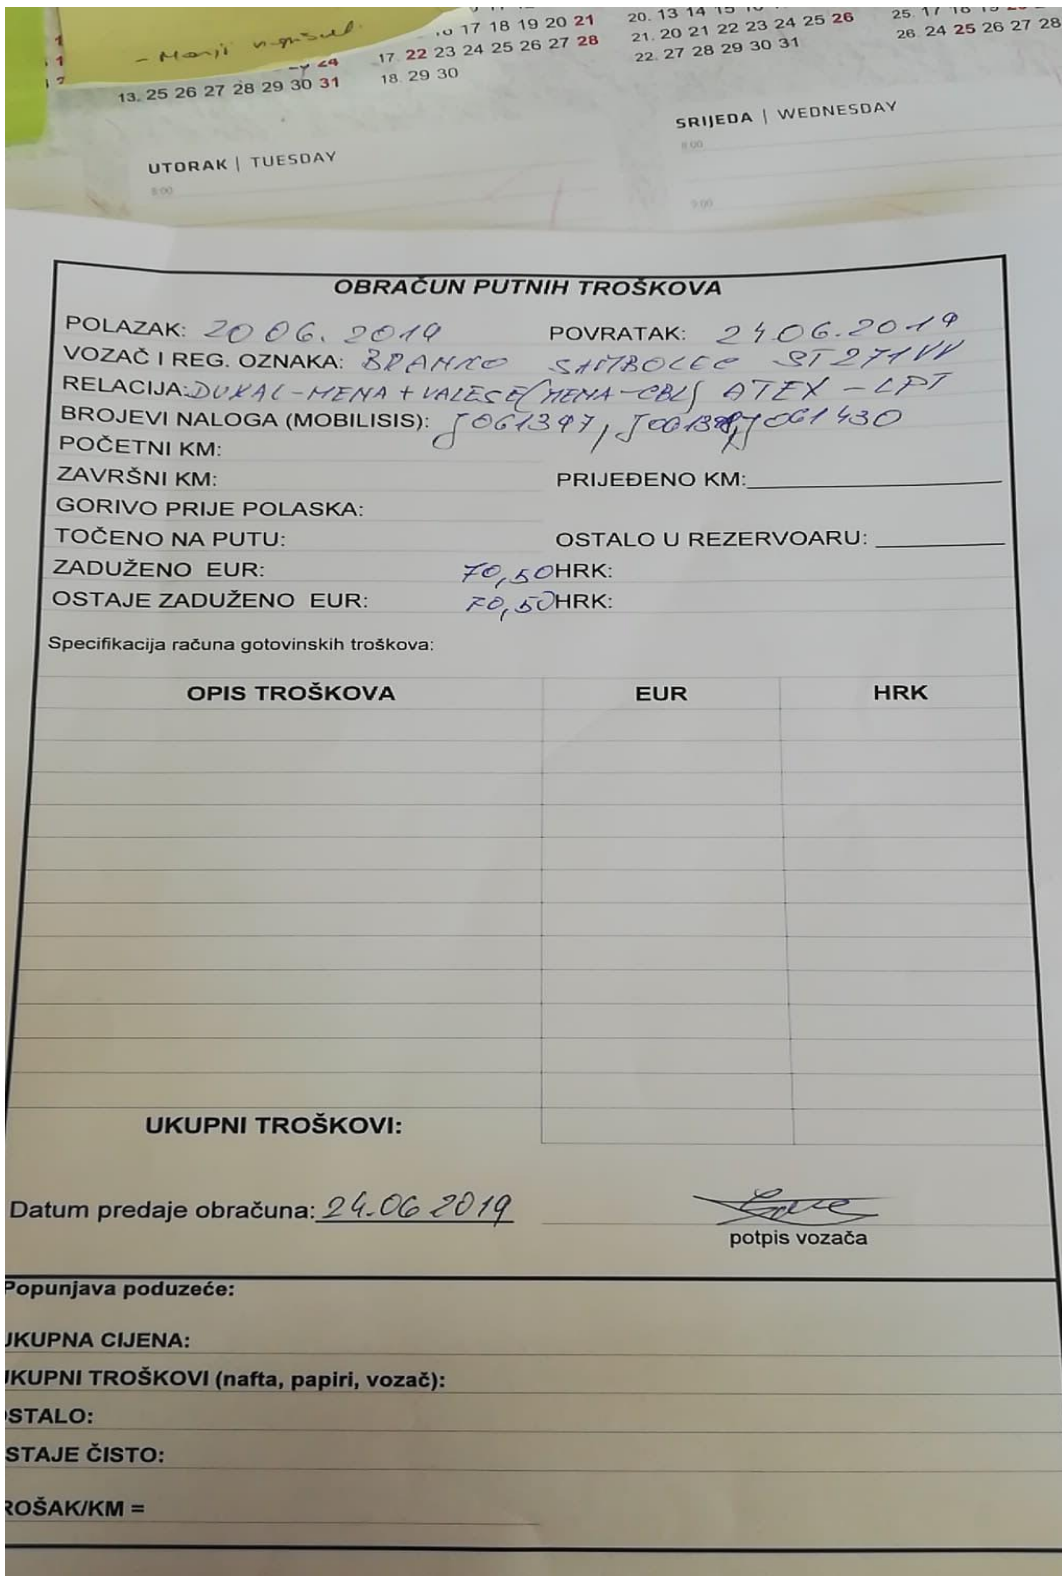 17 18 19 20 21
17. 22 23 24 25 26 27 28
18. 29 30
24
13. 25 26 27 28 29 30 31
20. 13 14 15
21. 20 21 22 23 24 25 26
22. 27 28 29 30 31
25. 17
26. 24 25 26 27 28
- Manji
UTORAK | TUESDAY
8:00
SRIJEDA | WEDNESDAY
8:00
9:00
OBRAČUN PUTNIH TROŠKOVA
POLAZAK: 20 06. 2019 POVRATAK: 24 06. 2019
VOZAČ I REG. OZNAKA: BRANKO ST 271 VV
RELACIJA: DUKAL - MENA + VALESE / MENA - CBL / ATEX - LPT
BROJEVI NALOGA (MOBILISIS): J061397, J061430
POČETNI KM:
ZAVRŠNI KM: PRIJEĐENO KM:
GORIVO PRIJE POLASKA:
TOČENO NA PUTU: OSTALO U REZERVOARU:
ZADUŽENO EUR: 70,50 HRK:
OSTAJE ZADUŽENO EUR: 70,50 HRK:
Specifikacija računa gotovinskih troškova:
OPIS TROŠKOVA EUR HRK
UKUPNI TROŠKOVI:
Datum predaje obračuna: 24.06 2019
potpis vozača
Popunjava poduzeće:
UKUPNA CIJENA:
UKUPNI TROŠKOVI (nafta, papiri, vozač):
OSTALO:
STAJE ČISTO:
ROŠAK/KM =